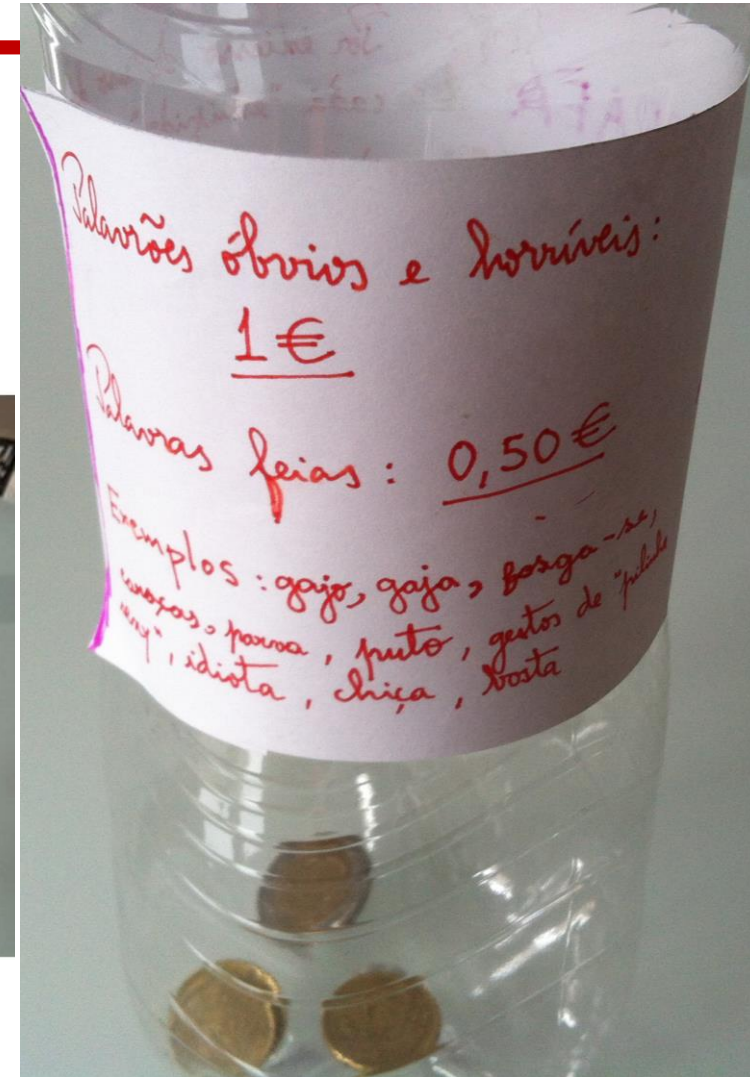 Palavrões óbvios e horríveis:
1€
Palavras feias: 0,50€
Exemplos: gajo, gaja, fosga-se,
caroças, parva, puto, gestos de "pilinha
", idiota, chiça, bosta